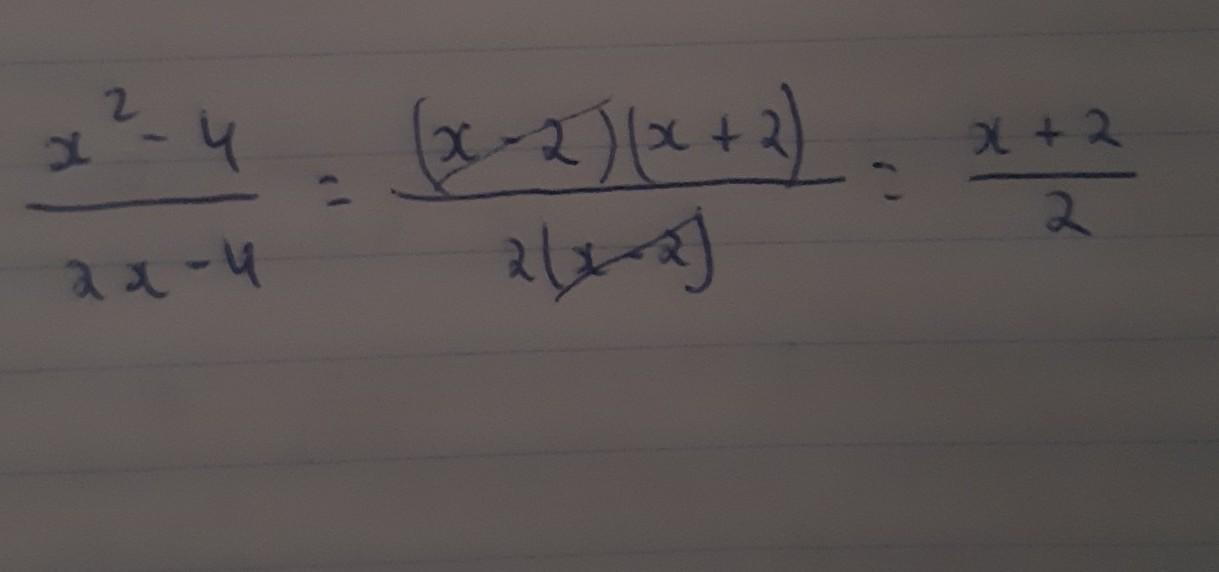 x² - 4 / 2x - 4 = (x - 2)(x + 2) / 2(x - 2) = x + 2 / 2